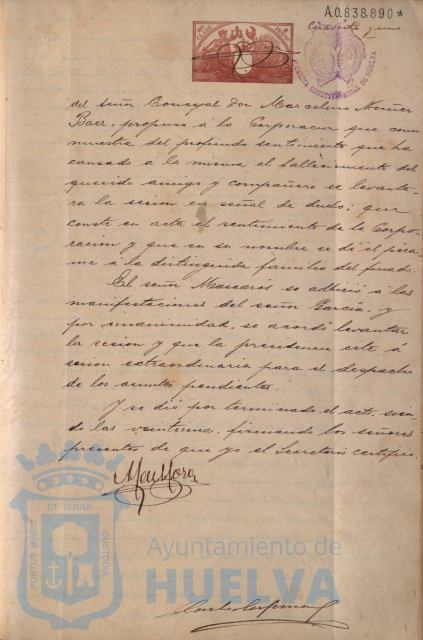 A.0.838.890*
Cuarenta y uno
ALCALDIA CONSTITUCIONAL DE HUELVA
del señor Concejal Don Marcelino Núñez
Baez, propuso á la Corporacion que como
muestra del profundo sentimiento que ha
causado á la misma el fallecimiento del
querido amigo y compañero se levanta-
ra la sesion en señal de duelo; que
conste en acta el sentimiento de la Corpo-
racion y que en su nombre se dé el pésa-
me á la distinguida familia del finado.
El señor Mascarós se adhirió á las
manifestaciones del señor García, y
por unanimidad, se acordó levantar
la sesion y que la presidencia cite á
sesion extraordinaria para el despacho
de los asuntos pendientes.
Y se dió por terminado el acto, sien-
do las veintiuna, firmando los señores
presentes de que yo el Secretario certifico.
ET TERRA
PORTUS MARIS
CUSTODIA
Ayuntamiento de
HUELVA